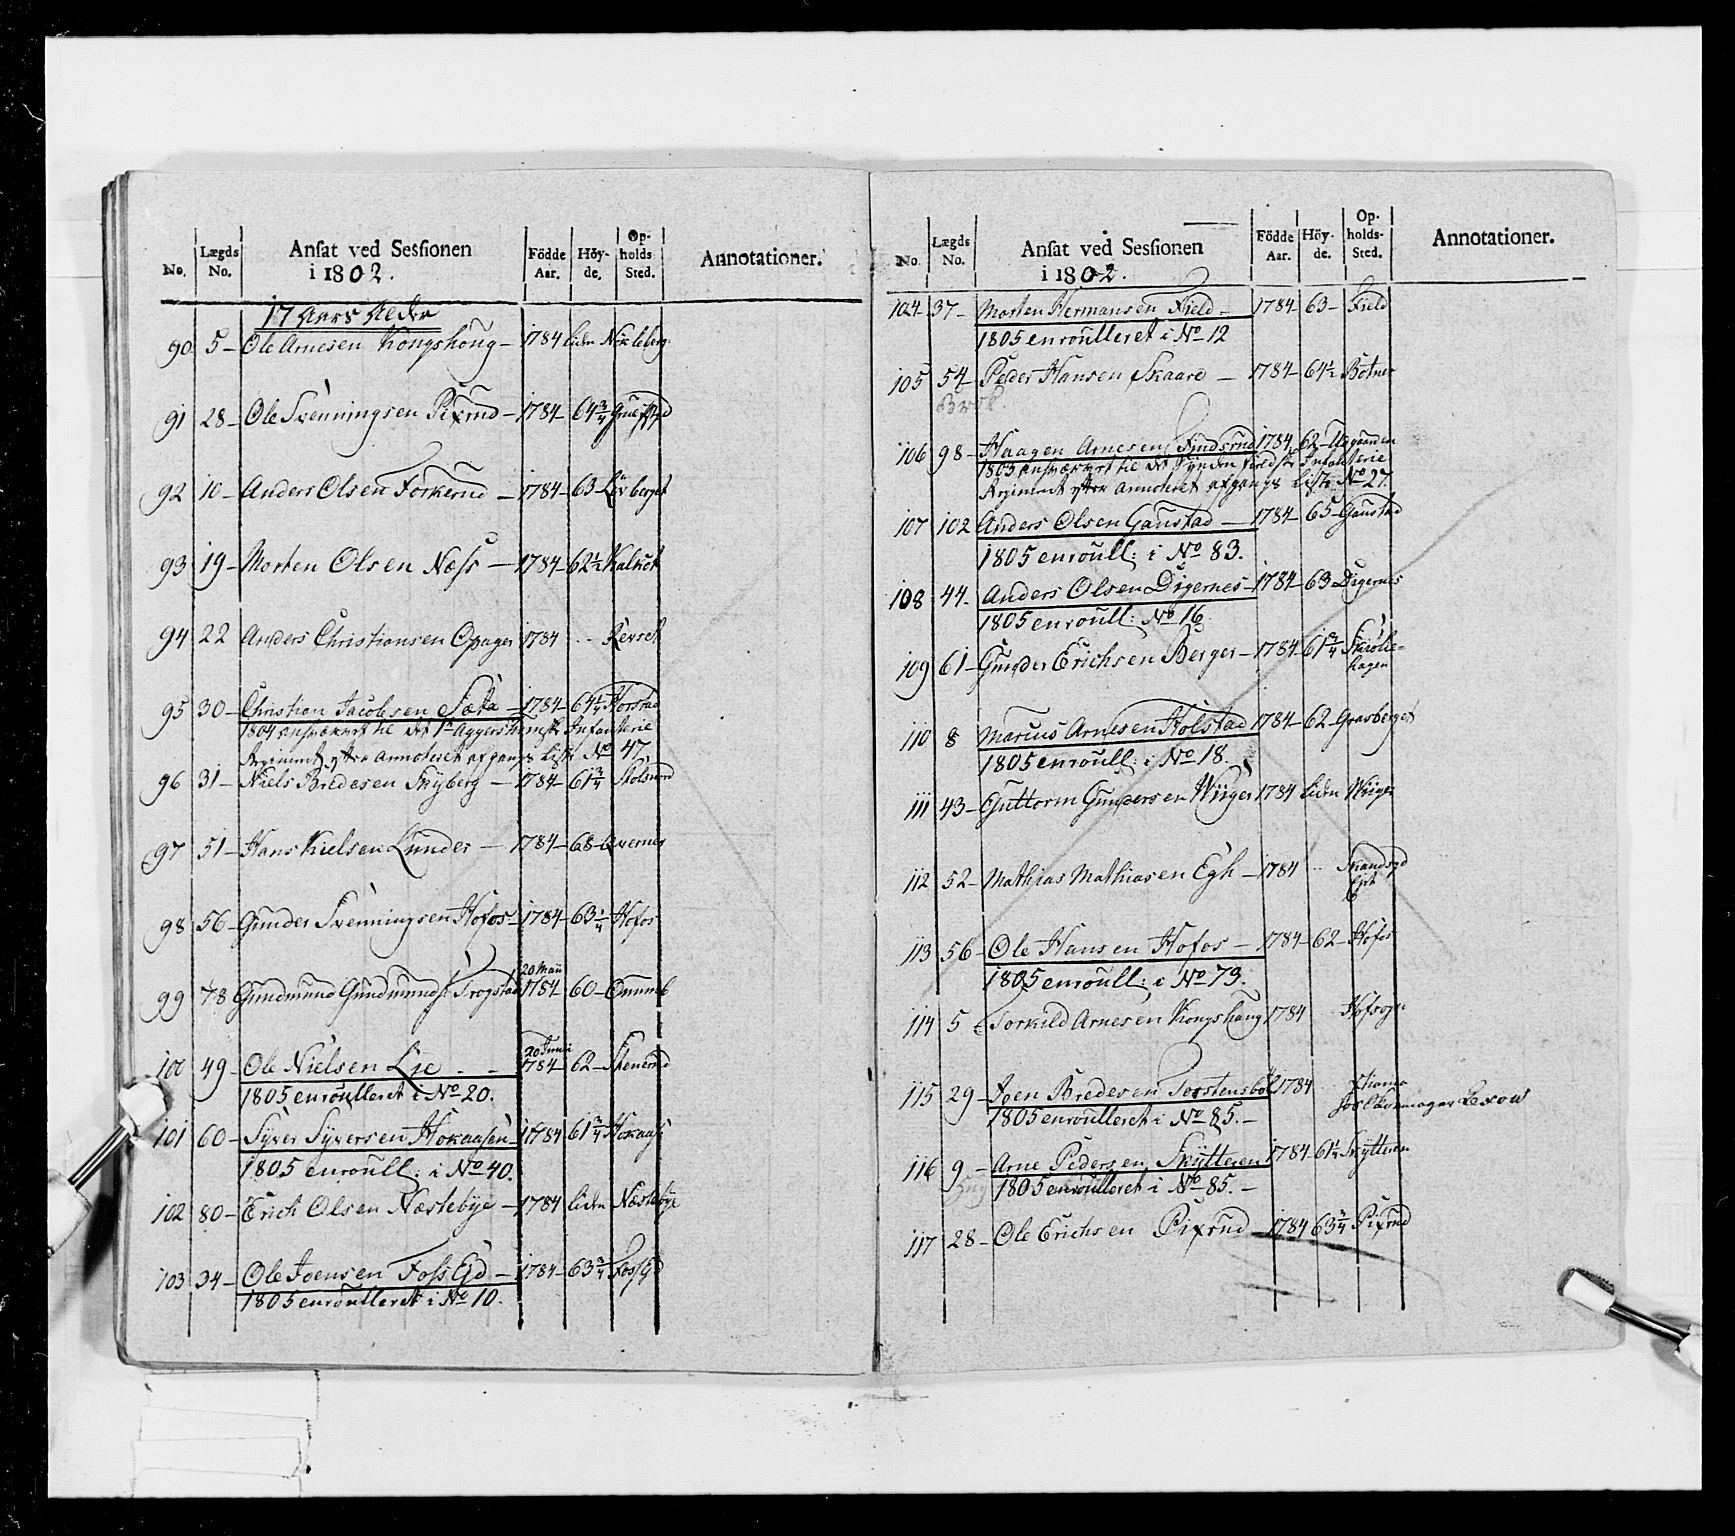 No. Lægds No. Ansat ved Sessionen i 1802. Födde Aar. Höy-de. Op-holds Sted. Annotationer.
17 Aars Alder
90 5 – Ole Arnesen Kongshoug – 1784 liden Nökleberg
91 28 – Ole Svenningsen Pixrud – 1784 – 64 3/4
92 10 – Anders Olsen Torkerud – 1784 – 63 – Lövberget
93 19 – Morten Olsen Næss – 1784 – 62 1/2 Kalkot
94 22 Anders Christiansen Opager 1784 Kerset
95 30 – Christian Jacobsen Sæta – 1784 – 64 1/4 Korstad
1804 til det 1te Aggershuusiske Infanterie
Regiment efter annoteret afgangs Liste No 47
96 31 – Niels Bredesen Skyberg – 1784 – 61 3/4 Stolsrud
97 51 – Hans Kielsen Lunder – 1784 – 68 – Qvernes
98 56 – Gunder Svenningsen Hofos – 1784 – 63 1/4 Hofos
99 78 Gundmund Gundmunds: Trogstad 20 Maii 1784 60 –
100 49 – Ole Nielsen Lie – – 20 Junii 1784 62 – Stenerud
1805 enroulleret i No 20.
101 60 – Syver Syversen Hokaasen – 1784 61 3/4 Hokaas
1805 enroull: i No 40.
102 80 – Erich Olsen Næstebye – 1784 liden Næstebye
103 34 – Ole Joensen Foss Ejd – 1784 – 63 3/4 Foss Ejd
1805 enroulleret i No 10.
No. Lægds No. Ansat ved Sessionen i 1802. Födde Aar. Höy-de. Op-holds-Sted. Annotationer.
104 37 – Morten Hermansen Field – 1784 – 63 – Field
1805 enroulleret i No 12
105 54 – Peder Hansen Skaare – 1784 – 64 1/2 Botner
106 98 – Haagen Arnesen Findsrud 1784 62 –
1805 til det Syndenfieldske Infanterie
Regiment efter annoteret afgangs Liste No 27.
107 102 Anders Olsen Gaustad – 1784 – 65 – Gaustad
1805 enroull: i No 83.
108 44 – Anders Olsen Digernes – 1784 – 63 Digernes
1805 enroull: No 16
109 61 – Gunder Erichsen Berger – 1784 – 61 3/4
110 8 Marius Arnesen Holstad 1784 – 62 – Grasberget
1805 enroull: i No 18.
111 43 – Guttorm Gundersen Wiiger 1784 liden Wiiger
112 52 – Mathias Mathiasen Egh – 1784
113 56 – Ole Hansen Hofos – 1784 – 62 – Hofos
1805 enroull: i No 79.
114 5 Torkild Arnesen Kongshaug 1784 Hofsogn
115 29 – Joen Bredesen Torstensböl 1784
1805 enroulleret i No 85. –
116 9 – Arne Pedersen Skytteren 1784 61 1/2 Skytteren
1805 enroulleret i No 85. –
117 28 – Ole Erichsen Pixrud – 1784 63 3/4 Pixrud